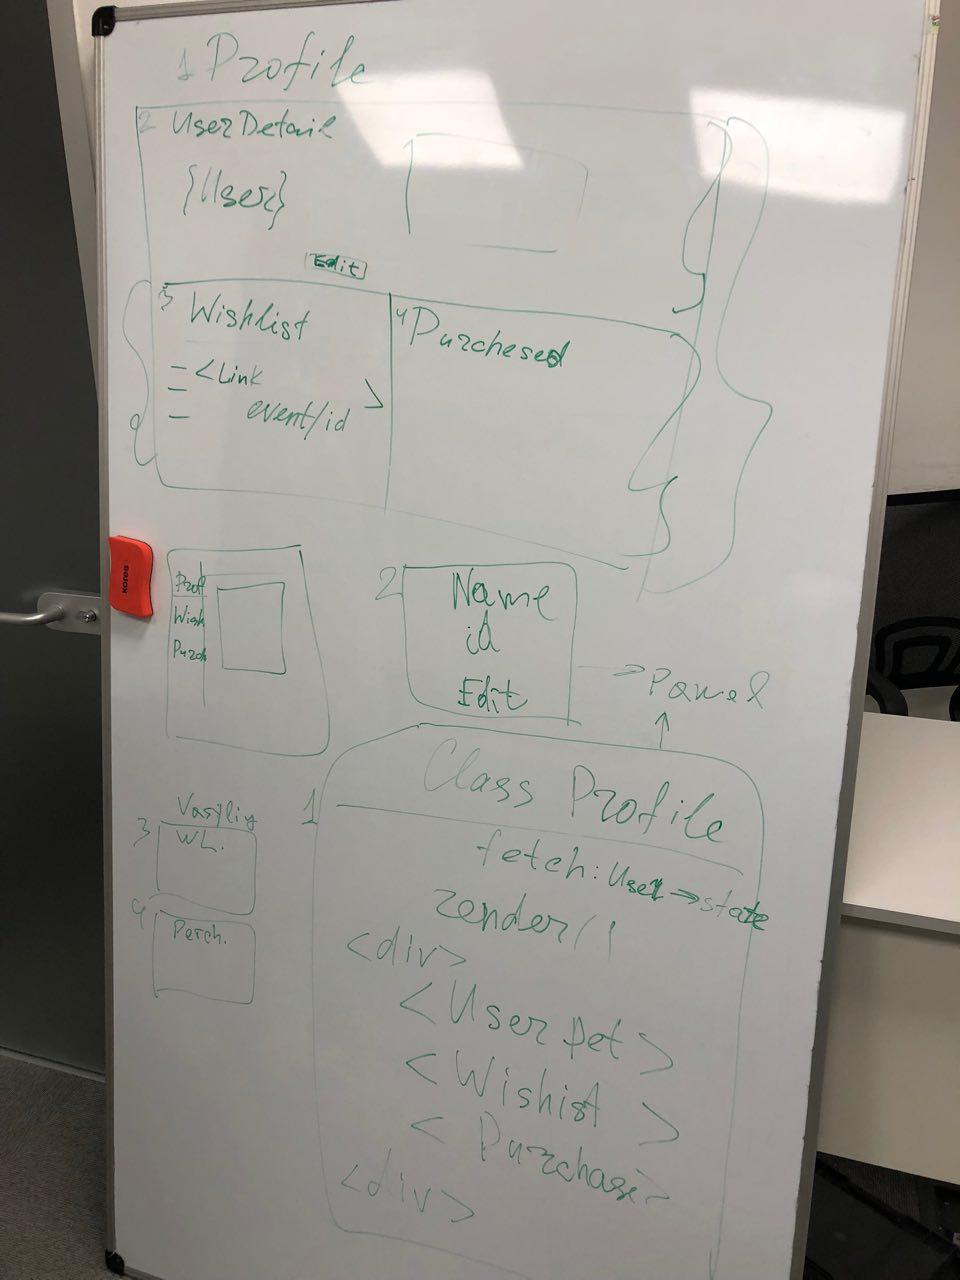 1 Profile
2 UserDetail
{User}
Edit
3 Wishlist
4 Purchesed
- <Link
event/id >
Prof
Wish
Purch
2 Name
id
Edit
→ Pawel
1 Class Profile
fetch: User → state
render()
<div>
<User Det>
<Wishist >
< Purchase
<div>
Vasyliy
3 WL.
4 Perch.
kores